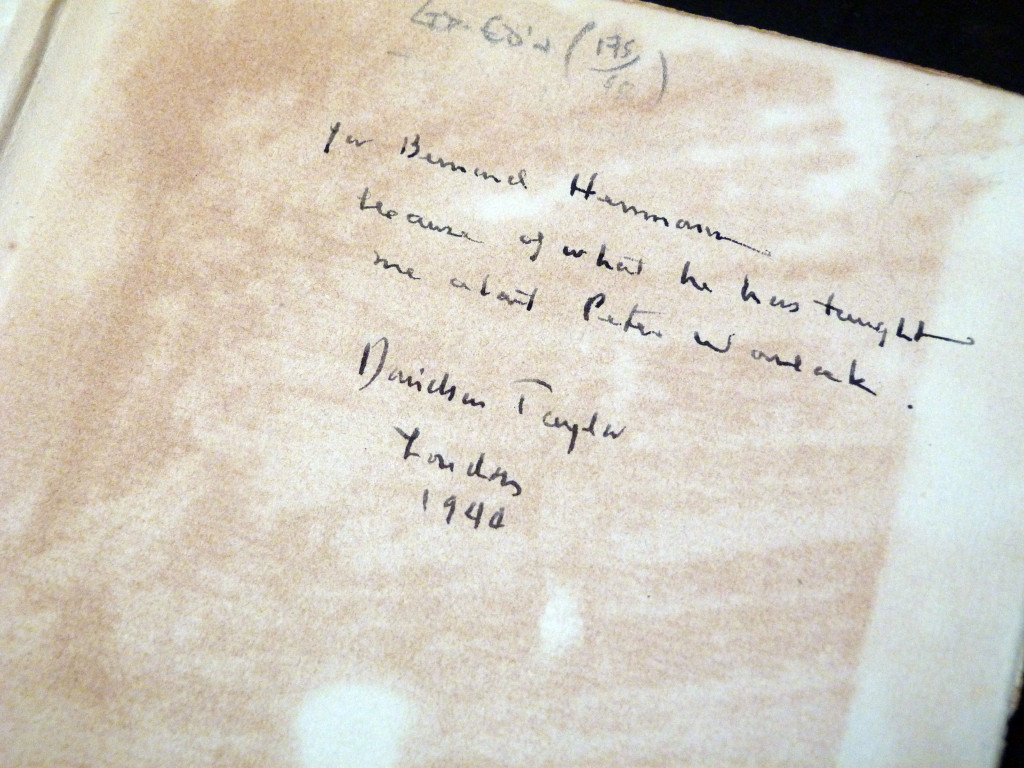 (175
for Bernard Herrmann
because of what he has taught
me about Peter Warlock.
Davidson Taylor
London
1940